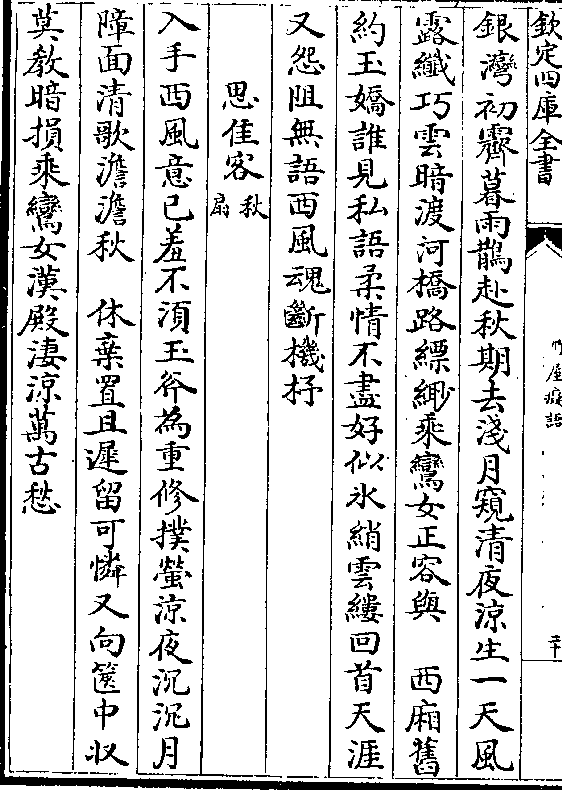 欽定四庫全書
竹屋癡語
二十
銀灣初霽暮雨鵲赴秋期去淺月窺清夜涼生一天風
露纖巧雲暗渡河橋路縹緲乘鸞女正容與　西廂舊
約玉嬌誰見私語柔情不盡好似氷綃雲縷回首天涯
又怨阻無語西風魂斷機杼
思佳客秋扇
入手西風意已羞不須玉斧為重修撲螢涼夜沉沉月
障面清歌澹澹秋　休棄置且遲留可憐又向篋中收
莫教暗損乘鸞女漢殿淒涼萬古愁